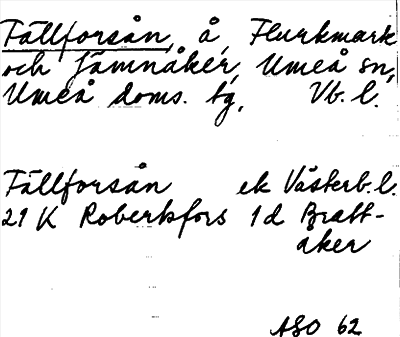 Fällforsån, å, Flurkmark
och Jämnåker, Umeå sn,
Umeå doms. tg, Vb. l.
Fällforsån ek Västerb.l.
21 K Robertsfors 1 d Bratt-
åker
ASO 62